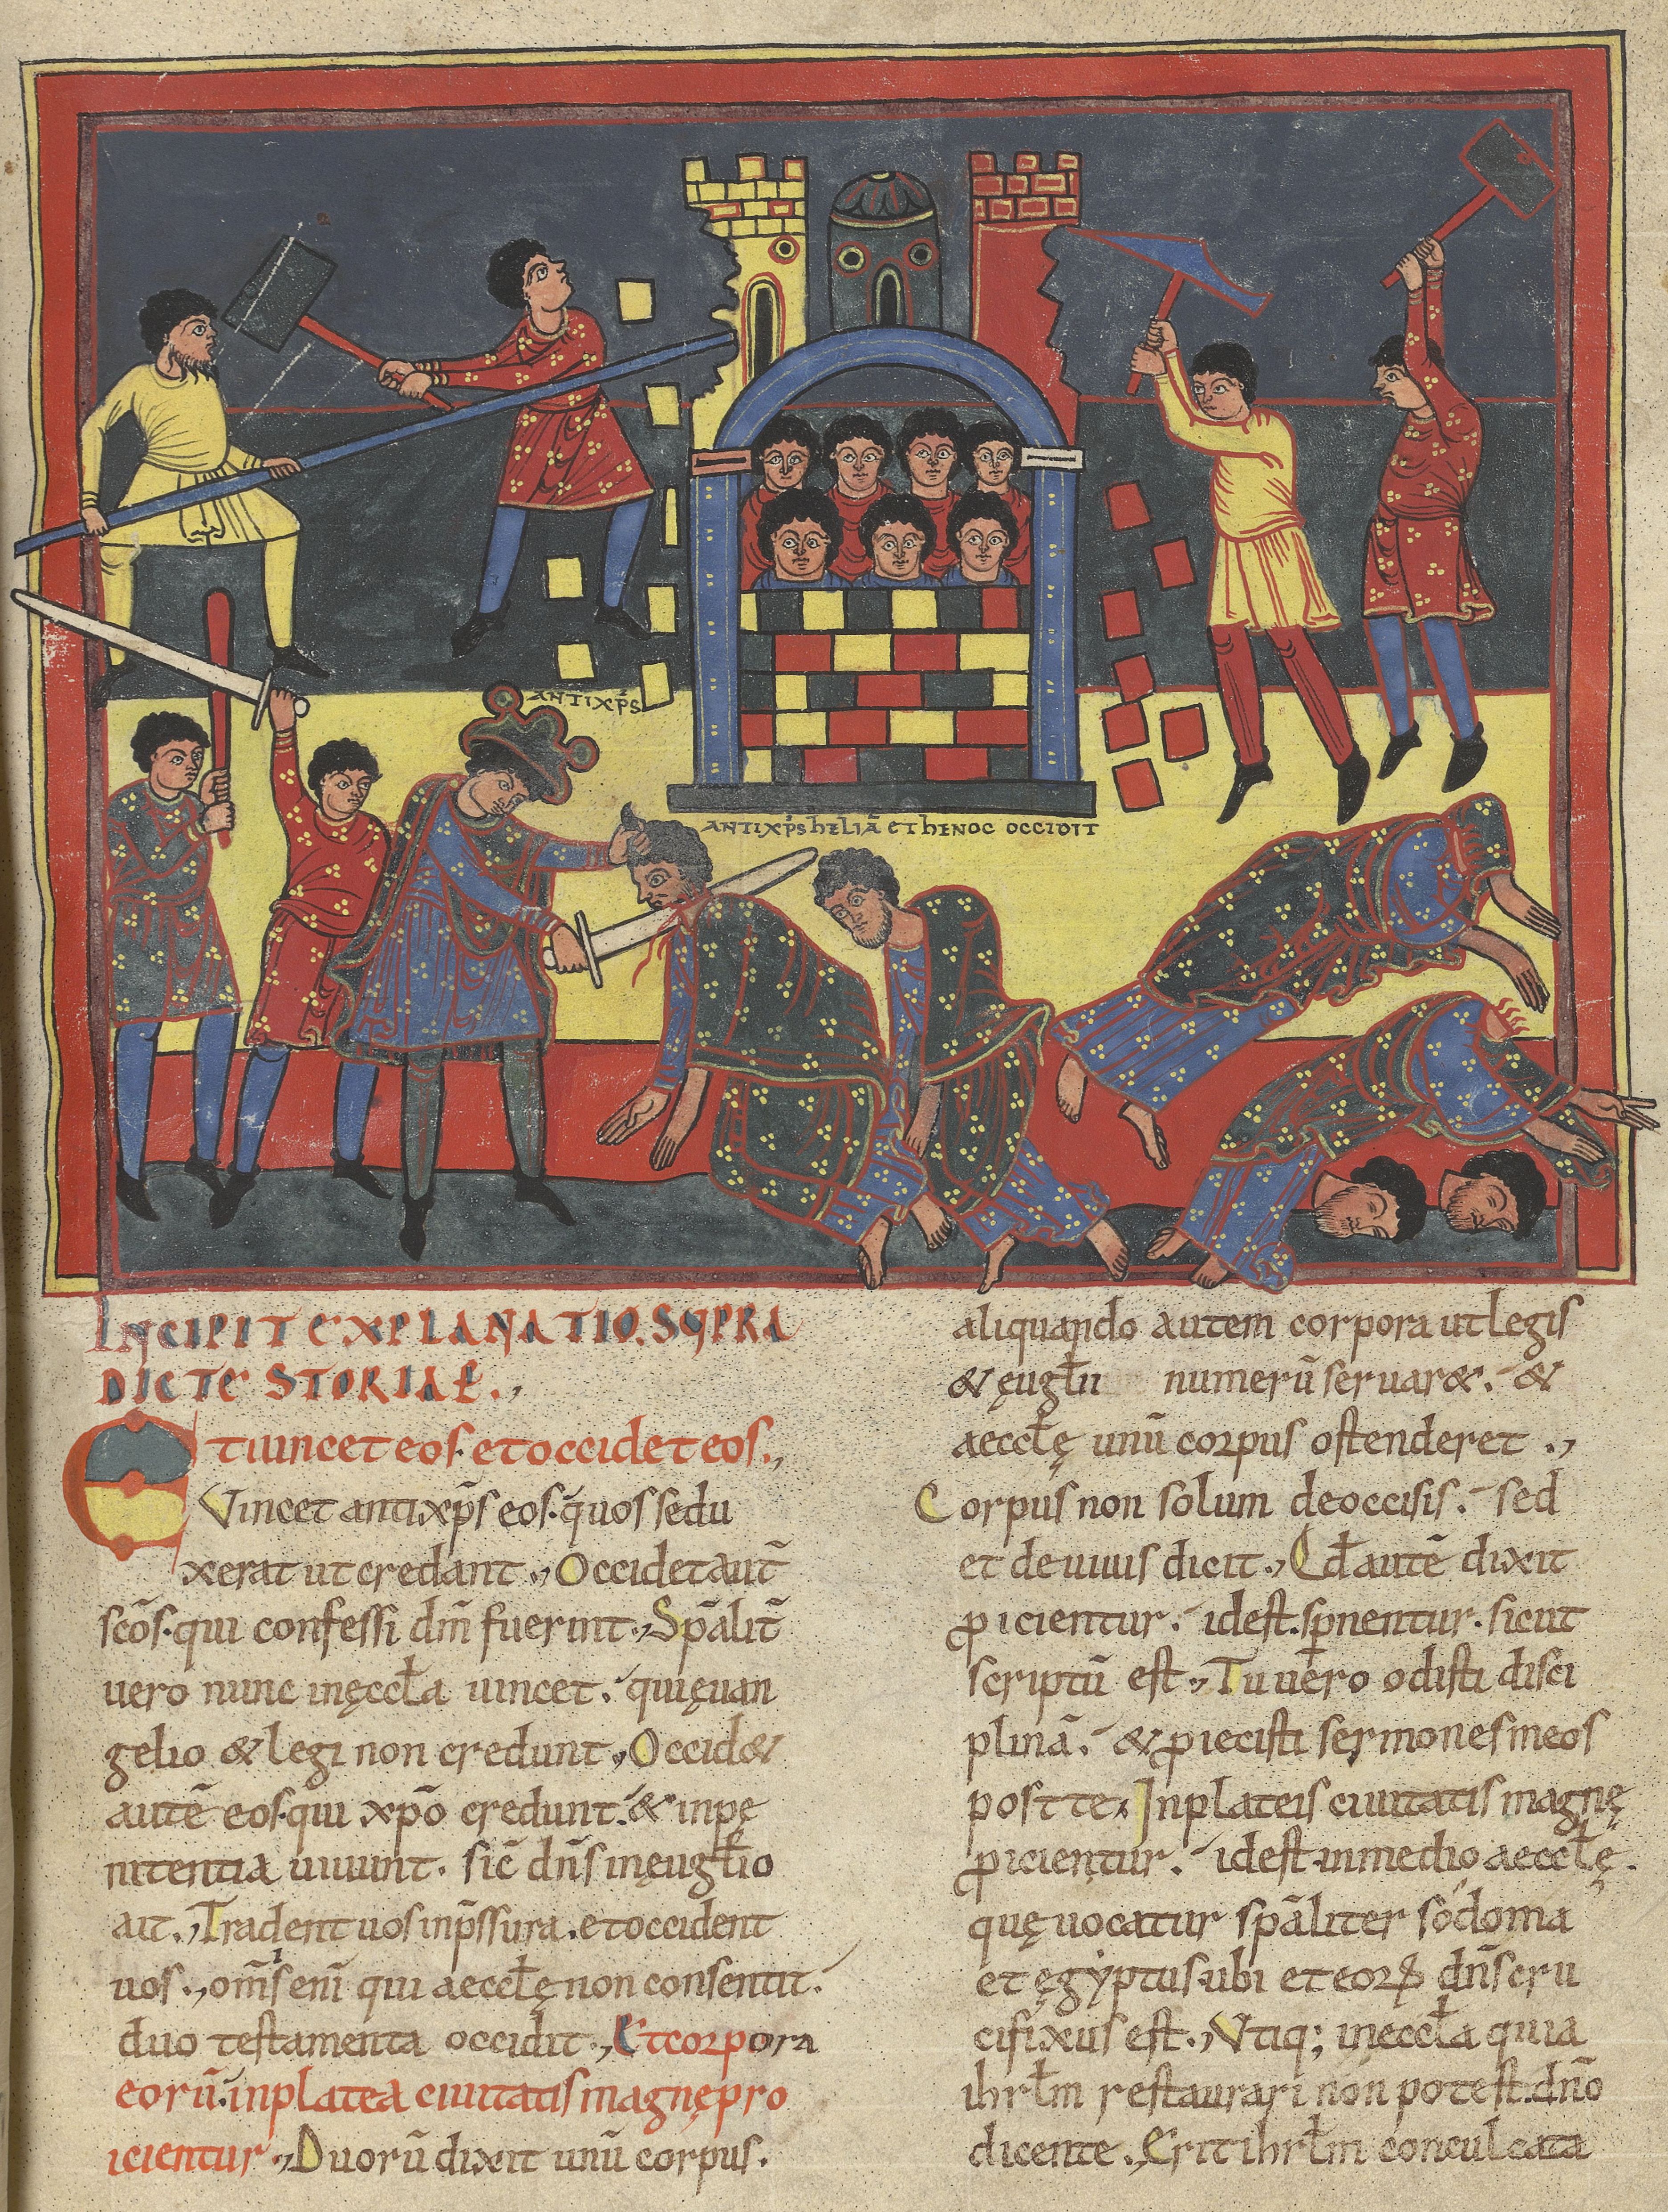 ANTIXP̄S
ANTIXP̄S hELIĀ ET hENOC OCCIDIT
INCIPIT EXPLANATIO. SUPRA
DICTE STORIAE.,
Et uincet eos. et occidet eos.,
Vincet antixp̄s eos. q̄uos sedu
xerat ut credant., Occidet aut̄
sc̄os. qui confessi dm̄ fuerint., Sp̄alit̄
uero nunc in ęccƚa uincet. qui ęuan
gelio & legi non credunt., Occid&
autē eos. qui xp̄o credunt. & in pę
nitentia uiuunt. sic̄ dn̄s in ęugƚio
ait., Tradent uos in p̄ssura. et occident
uos., om̄s enī qui aeccƚę non consentit.
duo testamenta occidit., Et corpora
eorū. in platea ciuitatis magnę pro
icientur., Duorū dixit unū corpus.
aliquando autem corpora ut legis
& ęugƚii numerū seruar&. &
aeccƚę unū corpus ostenderet .,
Corpus non solum de occisis. sed
et de uiuis dicit., Qd̄ autē dixit
ꝓicientur. id est. sꝑnentur. sicut
scriptū est., Tu uero odisti disci
plinā. & ꝓiecisti sermones meos
post te., In plateis ciuitatis magnę
ꝓicientur. id est. in medio aeccƚę.
quę uocatur sp̄aliter sodoma
et ęgyptus. ubi et eoꝝ dn̄s cru
cifixus est., Vtiq; in eccƚa quia
ihrƚm restaurari non potest. dn̄o
dicente., Erit ihrƚm conculcata